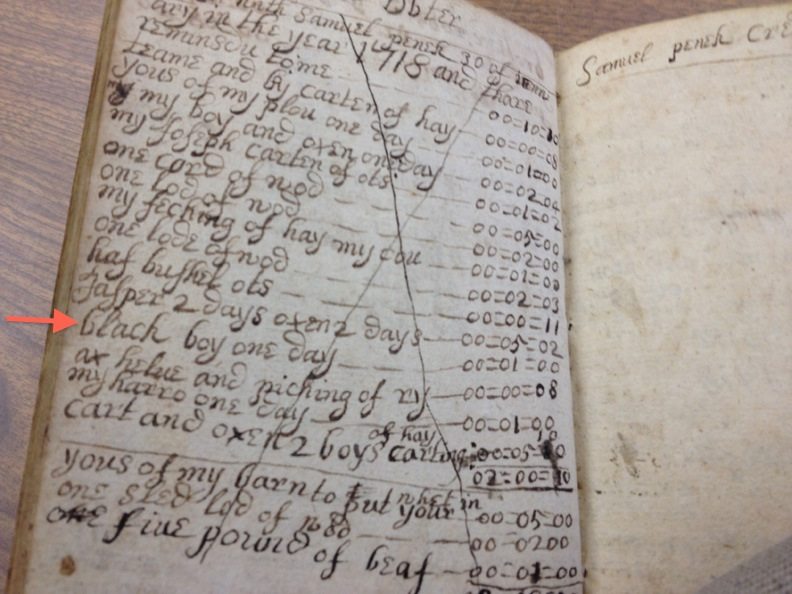 Dbter
Samuel penek 30 of
ary in the year 1718 and thare
reminsdu tome 00=10=10
teame and by carten of hay 00=00=08
yous of my plou one day 00=01=00
my boy and oxen one day 00=02=04
my Joseph carten of ots 00=01=02
one cord of wod 00=05=00
one lod of wod 00=02=00
my feching of hay my cou 00=01=00
one lode of wod 00=02=03
haf bushel ots 00=00=11
Jasper 2 days oxen 2 days 00=05=02
black boy one day 00=01=00
ax helue and piching of ry 00=00=08
my harro one day 00=01=00
of hay
cart and oxen 2 boys carting 00=05=10
02=00=10
yous of my barn to put your whet in 00=05=00
one sled lod of wod 00=0200
five pound of beaf 00=01=00
Samuel penek Cre